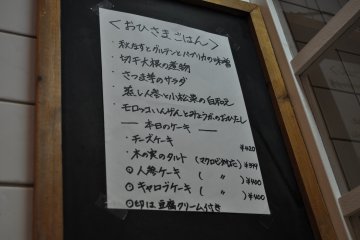 <おひさまごはん>
・秋なすとグルテンとパプリカの味噌
・切干大根の煮物
・さつま芋のサラダ
・蒸し人参と小松菜の白和え
・モロッコいんげんとみょうがのおかかだし
― 本日のケーキ ―
・チーズケーキ ¥420
・木の実のタルト (マクロビ対応)
◎人参ケーキ ( 〃 ) ¥400
◎キャロブケーキ ( 〃 ) ¥400
◎印は豆腐クリーム付き